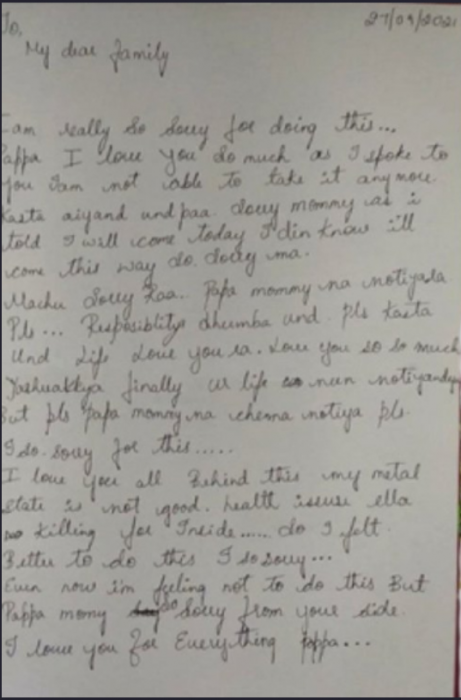 To,
27/09/2021
My dear family
I am really so sorry for doing this...
Pappa I love you so much as I spoke to
you I am not able to take it anymore.
Kasta aiyand und paa. sorry mommy as i
told I will come today I din know i'll
come this way so. sorry ma.
Machu Sorry Raa.. Papa mommy na notiyala
Pls... Resposiblity dhumba und. pls Kasta
Und Life Love you ra. Love you so so much
finally ur life nun
But pls papa mommy na chenna notiya pls.
I so. sorry for this.....
I love you all Behind this my metal
state is not good. health issuse ella
Killing for Inside..... so I felt
Better to do this I so sorry...
Even now i'm feeling not to do this But
Pappa momy so sorry from your side.
I love you for Everything pappa...